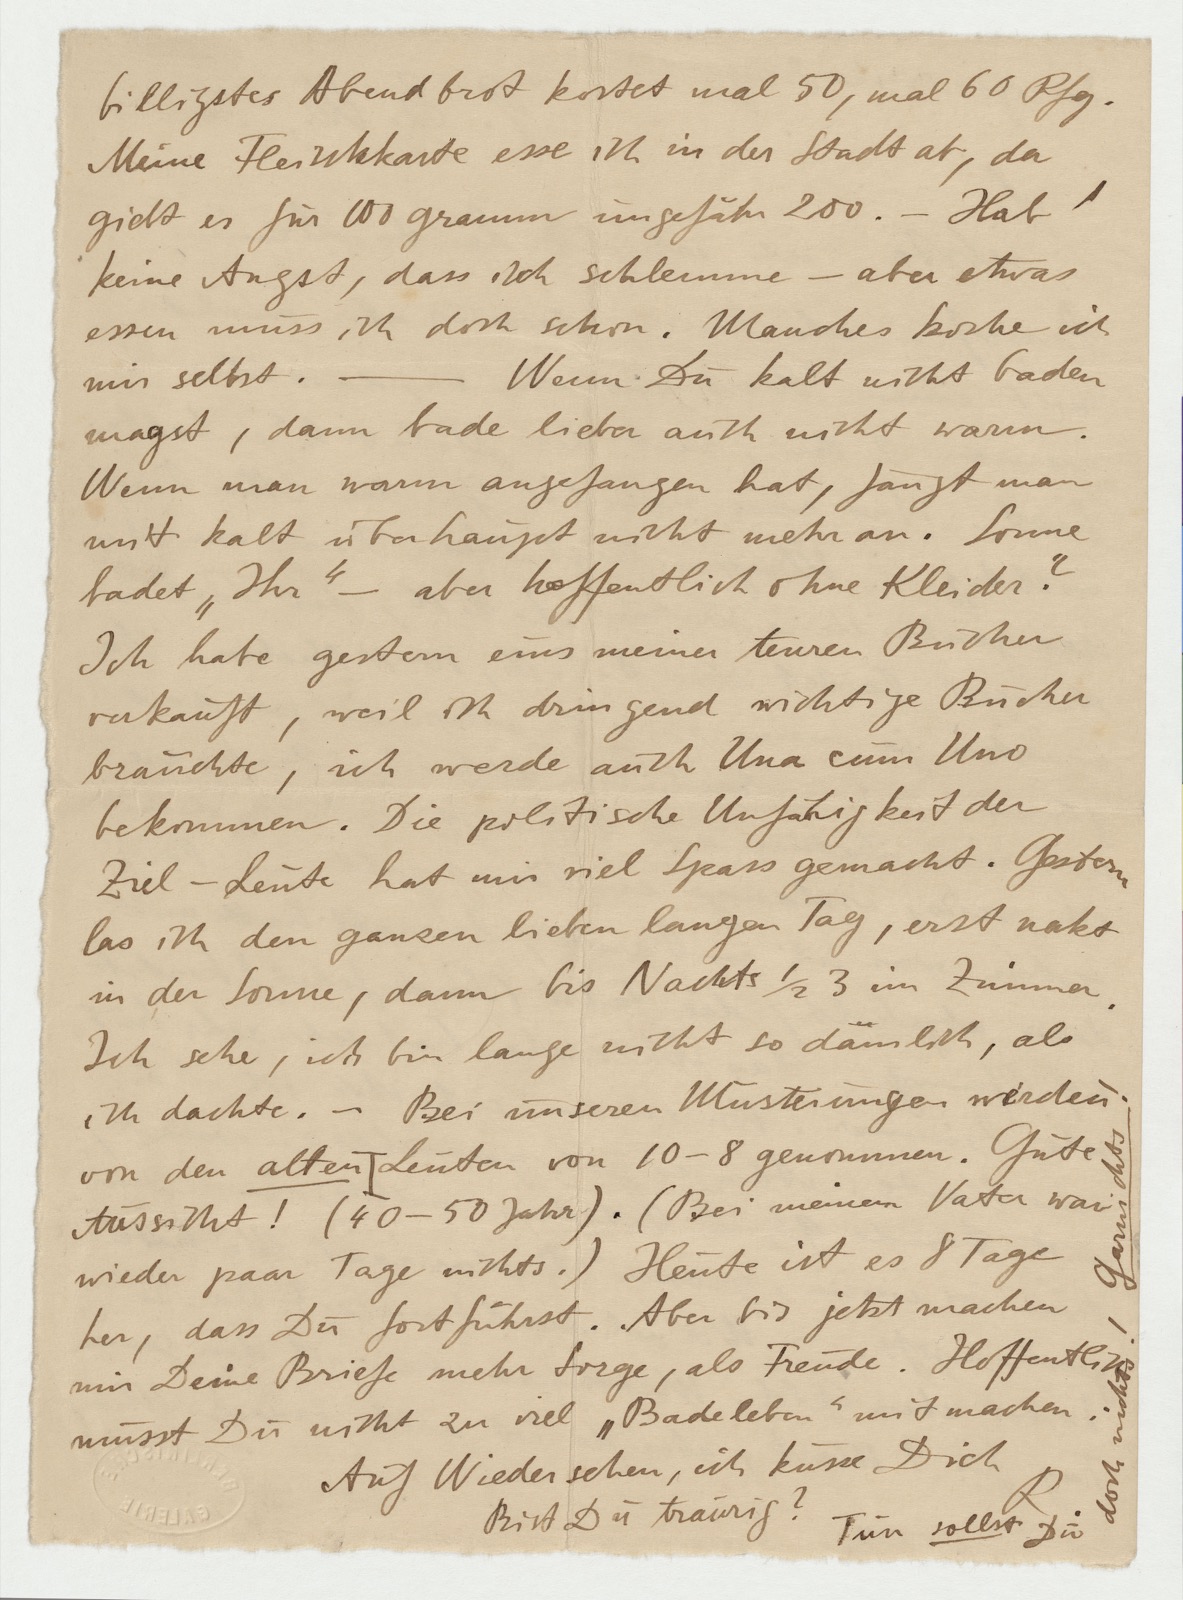 billigstes Abendbrot kostet mal 50, mal 60 Pfg.
Meine Fleischkarte esse ich in der Stadt ab, da
giebt es für 100 gramm ungefähr 200. – Hab'
keine Angst, dass ich schlemme – aber etwas
essen muss ich doch schon. Manches koche ich
mir selbst. —— Wenn Du kalt nicht baden
magst, dann bade lieber auch nicht warm.
Wenn man warm angefangen hat, fängt man
mit kalt überhaupt nicht mehr an. Sonne
badet „Ihr“ – aber hoffentlich ohne Kleider?
Ich habe gestern eins meiner teuren Bücher
verkauft, weil ich dringend wichtige Bücher
brauchte, ich werde auch Una cum Uno
bekommen. Die politische Unfähigkeit der
Ziel-Leute hat mir viel Spass gemacht. Gestern
las ich den ganzen lieben langen Tag, erst nakt
in der Sonne, dann bis Nachts ½ 3 im Zimmer.
Ich sehe, ich bin lange nicht so dämlich, als
ich dachte. – Bei unseren Musterungen werden
von den alten Leuten von 10–8 genommen. Gute
Aussicht! (40–50 Jahr). (Bei meinem Vater war
wieder paar Tage nichts.) Heute ist es 8 Tage
her, dass Du fortfuhrst. Aber bis jetzt machen
mir Deine Briefe mehr Sorge, als Freude. Hoffentlich
musst Du nicht zu viel „Badeleben“ mitmachen.
Auf Wiedersehen, ich küsse Dich
R
Bist Du traurig? Tun sollst Du
doch nichts! Garnichts!
GALERIE